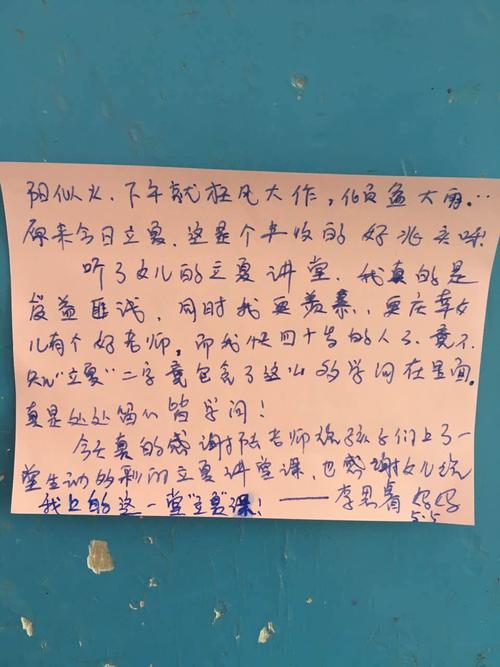 阳似火，下午就狂风大作，倾盆大雨…
原来今日立夏，这是个丰收的好兆头呀
听了女儿的立夏讲堂，我真的是
受益匪浅，同时我更羡慕，更庆幸女
儿有个好老师，而我快四十岁的人了，竟不
知"立夏"二字竟包含了这么多的学问在里面。
真是处处留心皆学问！
今天真的感谢陆老师给孩子们上了一
堂生动多彩的立夏讲堂课，也感谢女儿给
我上的这一堂"立夏"课！——李思 妈妈
5.5